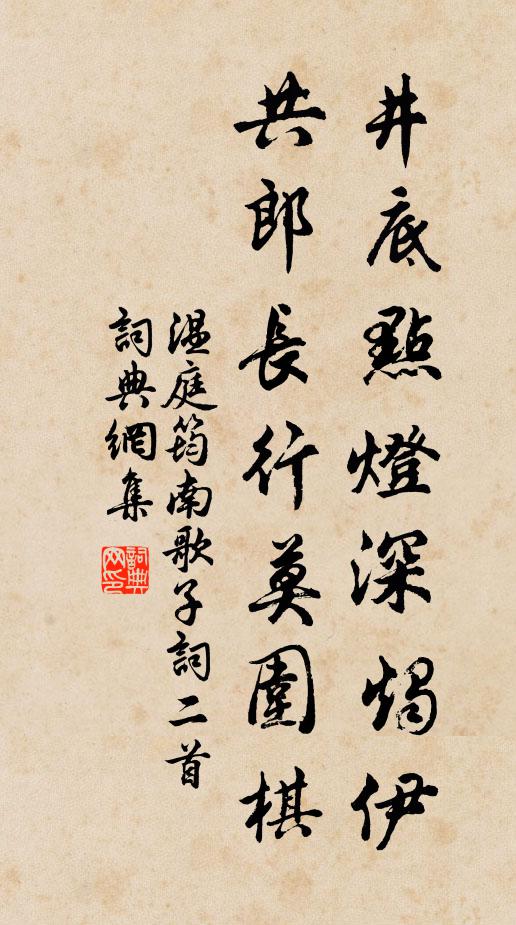 井底點燈深燭伊
共郎長行莫圍棋
溫庭筠南歌子詞二首
詞典網集
詞典網印